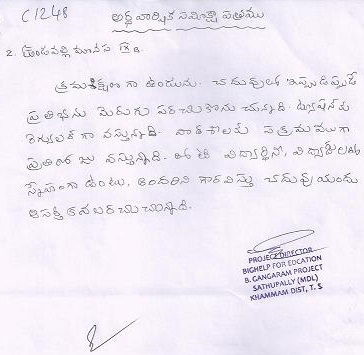 C1248
అర్ధ వార్షిక సమీక్షా పత్రము
2. కొండపల్లి మానస IX B.
క్రమశిక్షణ గా ఉండును. చదువులో ఇప్పుడిప్పుడే
ప్రతిభను మెరుగు పరచుకొను చున్నది. ట్యూషన్ కు
రెగ్యులర్ గా వస్తున్నది. పాఠశాలకు సక్రమముగా
ప్రతిరోజు వస్తున్నది. తోటి విద్యార్థినీ, విద్యార్థులతో
స్నేహంగా ఉంటు, అందరిని గౌరవిస్తు చదువు యందు
ఆసక్తి కనబరచుచున్నది.
PROJECT DIRECTOR
BIGHELP FOR EDCATION
B. GANGARAM PROJECT
SATHUPALLY (MDL)
KHAMMAM DIST, T. S